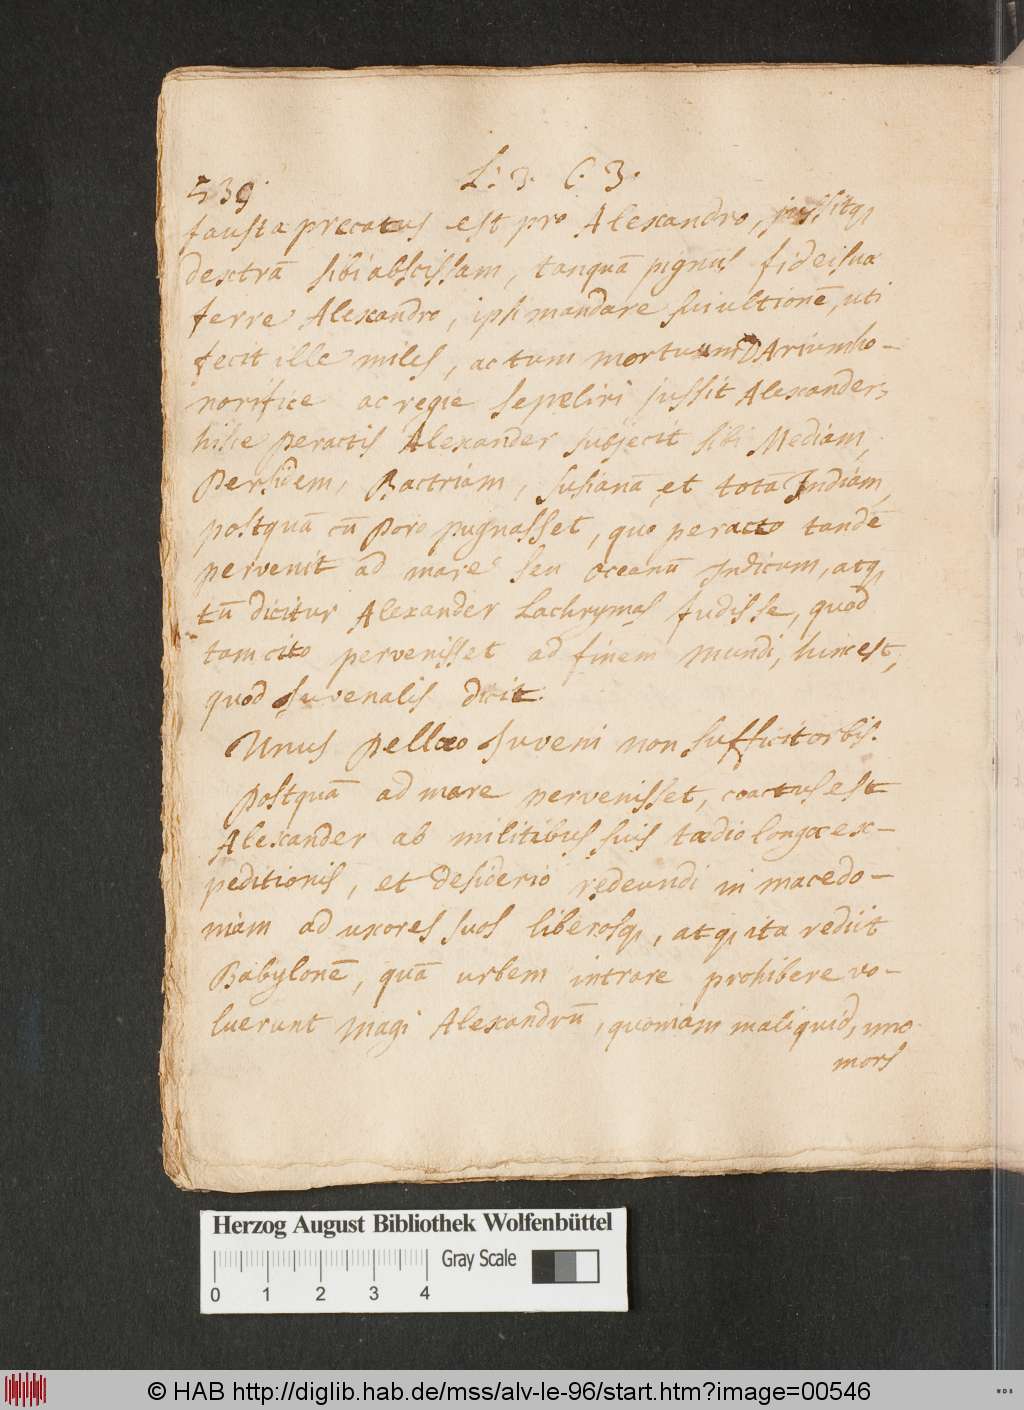 539. L: 3. C. 3.
fausta precatus est pro Alexandro, jussitq
dextrā sibi abscissam, tanquā pignus fidei sua
ferre Alexandro, ipsi mandare sui ultionē, uti
fecit ille miles, ac tum mortuum DArium ho-
norifice ac regie sepeliri jussit Alexander,
hisce peractis Alexander subjecit sibi Mediam,
Persidem, Bactriam, Susianā et totā Indiam,
postquā cū Poro pugnasset, quo peracto tandē
pervenit ad mare seu oceanū Indicum, atq
tū dicitur Alexander Lachrymas fudisse, quod
tam cito pervenisset ad finem mundi, hinc est,
quod Juvenalis dicit.
Unus pellæo Juveni non sufficit orbis.
Postquā ad mare pervenisset, coactus est
Alexander ab militibus suis tædio longæ ex-
peditionis, et desiderio redeundi in macedo-
niam ad uxores suos liberosq, atq ita rediit
Babylonē, quā urbem intrare prohibere vo-
luerunt magi Alexandrū, quoniam maliquid, imo
mors
Herzog August Bibliothek Wolfenbüttel
Gray Scale
0 1 2 3 4
© HAB http://diglib.hab.de/mss/alv-le-96/start.htm?image=00546